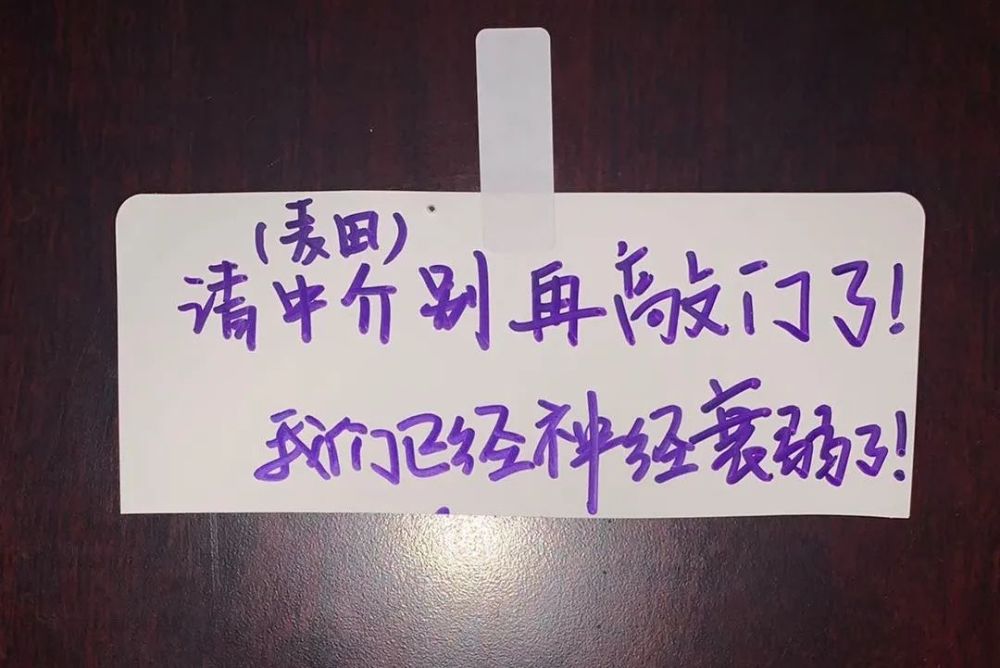 (麦田)
请中介别再敲门了!
我们已经神经衰弱了!